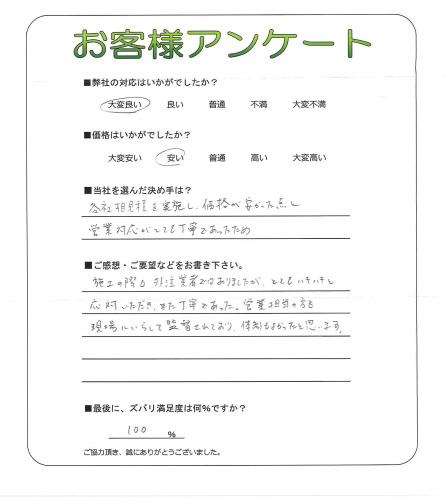 お客様アンケート
■弊社の対応はいかがでしたか？
大変良い 良い 普通 不満 大変不満
■価格はいかがでしたか？
大変安い 安い 普通 高い 大変高い
■当社を選んだ決め手は？
各社相見積を実施し、価格が安かった点と
営業対応がとても丁寧であったため
■ご感想・ご要望などをお書き下さい。
施工の際も外注業者ではありましたが、とてもハキハキと
応対いただき、また丁寧であった。営業担当の方も
現場にいらして監督されており、体制もよかったと思います。
■最後に、ズバリ満足度は何％ですか？
100 %
ご協力頂き、誠にありがとうございました。